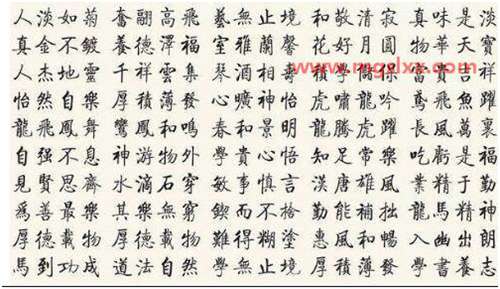 人淡如菊 奮翮高飛 藝無止境 和敬清寂 真味是淡
真金不鍍 養德澤福 室雅蘭馨 花好月圓 物華天寶
人杰地靈 千祥雲集 琴酒相
www.mgzlxx.com
怡然自樂 厚積薄發 心曠神怡 虎嘯龍吟 鳶飛魚躍
龍飛鳳舞 鸞鳳和鳴 春和景明 龍騰虎躍 長風萬裏
自强不息 神游物外 學貴心悟 知足常樂 吃虧是福
見賢思齊 水滴石穿 敏事慎言 漢唐雄風 業精于勤
爲善最樂 其樂無窮 鍥而不捨 勤能補拙 龍馬精神
厚德載物 厚德載物 難得糊塗 惠風和暢 入幽出朗
馬到功成 道法自然 學無止境 厚積薄發 學書養志